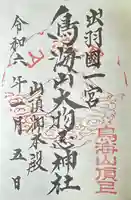 出羽國一宮
鳥海山大物忌神社
山頂御本殿
令和六年 月五日
鳥海山頂上